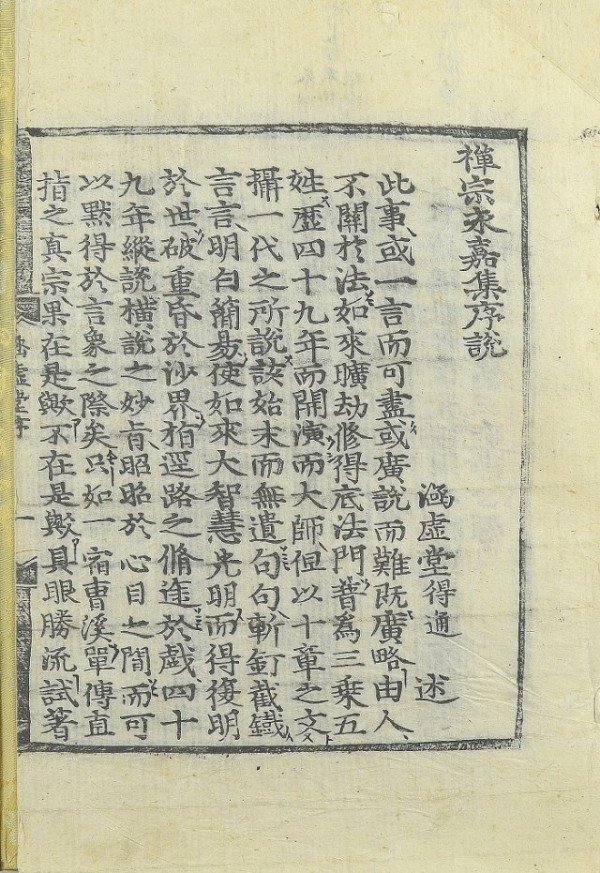 禪宗永嘉集序說
涵虛堂得通 述
此事或一言而可盡或廣說而難既廣略由人
不關於法如來曠劫修得底法門普為三乘五
姓歷四十九年而開演而大師但以十章之文
攝一代之所說該始末而無遺句句斬釘截鐵
言言明白簡易使如來大智慧光明而得復明
於世破重昏於沙界指逕路之脩途於戲四十
九年縱說橫說之妙旨昭昭於心目之間而可
以默得於言象之際矣只如一宿曹溪單傳直
指之真宗果在是歟不在是歟具眼勝流試著
涵虛堂序 一